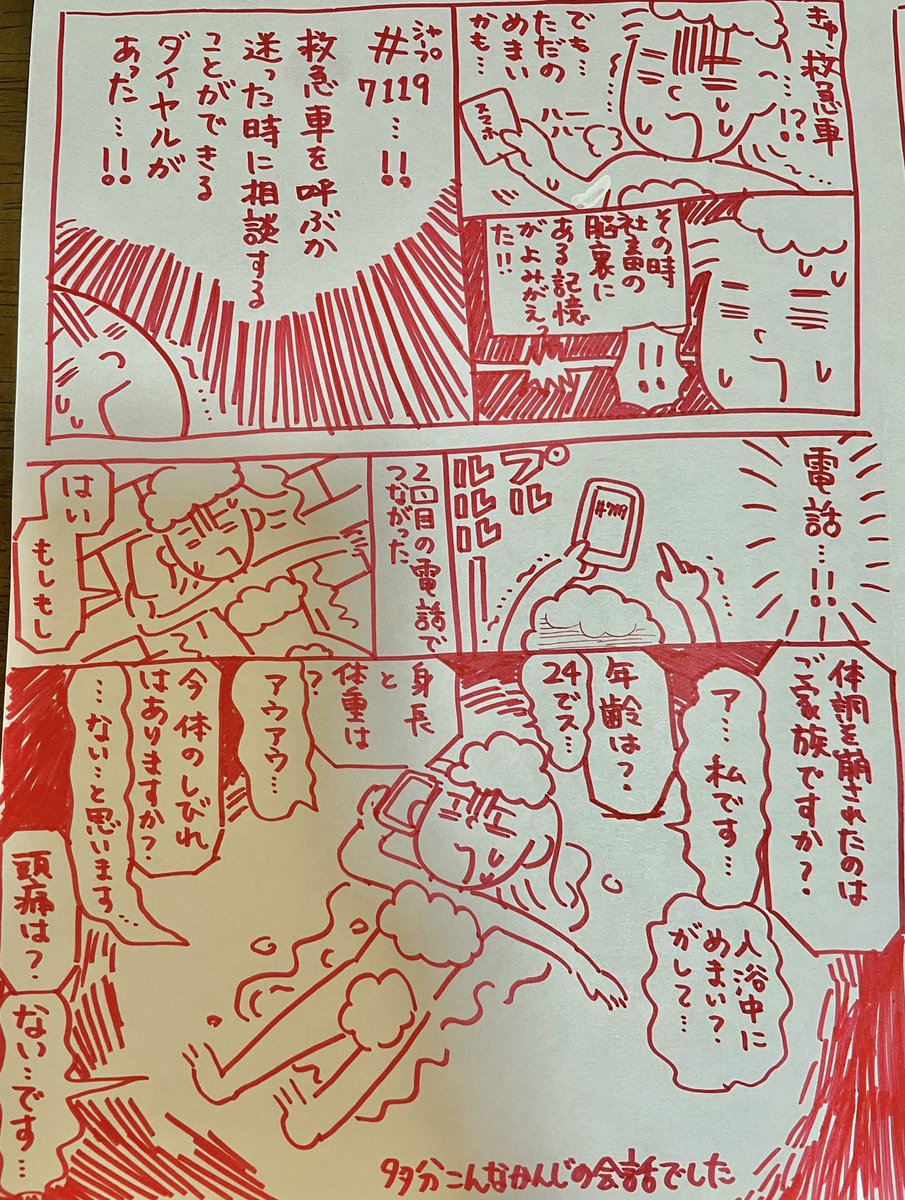 きゅ、救急車
…!?
でも…
ただの
めまい
かも…
ハー
ハー
スマホ
その時
社畜の
脳裏に
ある記憶
がよみがえっ
た!!
シャープ
#7119…!!
救急車を呼ぶか
迷った時に相談する
ことができる
ダイヤルが
あった…!!
電話…!!
プルルルルルー
#719
2回目の電話で
つながった
はい
もしもし
体調を崩されたのは
ご家族ですか?
ア…私です…
入浴中に
めまい?
がして…
年齢は?
24でス…
身長
と
体重は
?
アウアウ…
今体のしびれ
はありますか?
…ない…と思います
頭痛は?
ない…です…
多分こんなかんじの会話でした